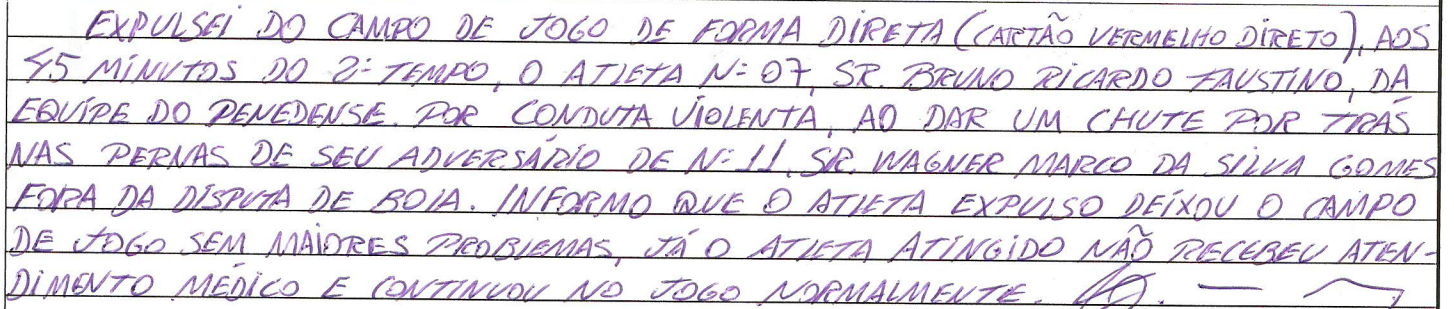 EXPULSEI DO CAMPO DE JOGO DE FORMA DIRETA (CARTÃO VERMELHO DIRETO), AOS
45 MINUTOS DO 2º TEMPO, O ATLETA Nº 07, SR. BRUNO RICARDO FAUSTINO, DA
EQUIPE DO PENEDENSE. POR CONDUTA VIOLENTA, AO DAR UM CHUTE POR TRÁS
NAS PERNAS DE SEU ADVERSÁRIO DE Nº 11, SR. WAGNER MARCO DA SILVA GOMES
FORA DA DISPUTA DE BOLA. INFORMO QUE O ATLETA EXPULSO DEIXOU O CAMPO
DE JOGO SEM MAIORES PROBLEMAS, JÁ O ATLETA ATINGIDO NÃO RECEBEU ATEN-
DIMENTO MÉDICO E CONTINUOU NO JOGO NORMALMENTE.